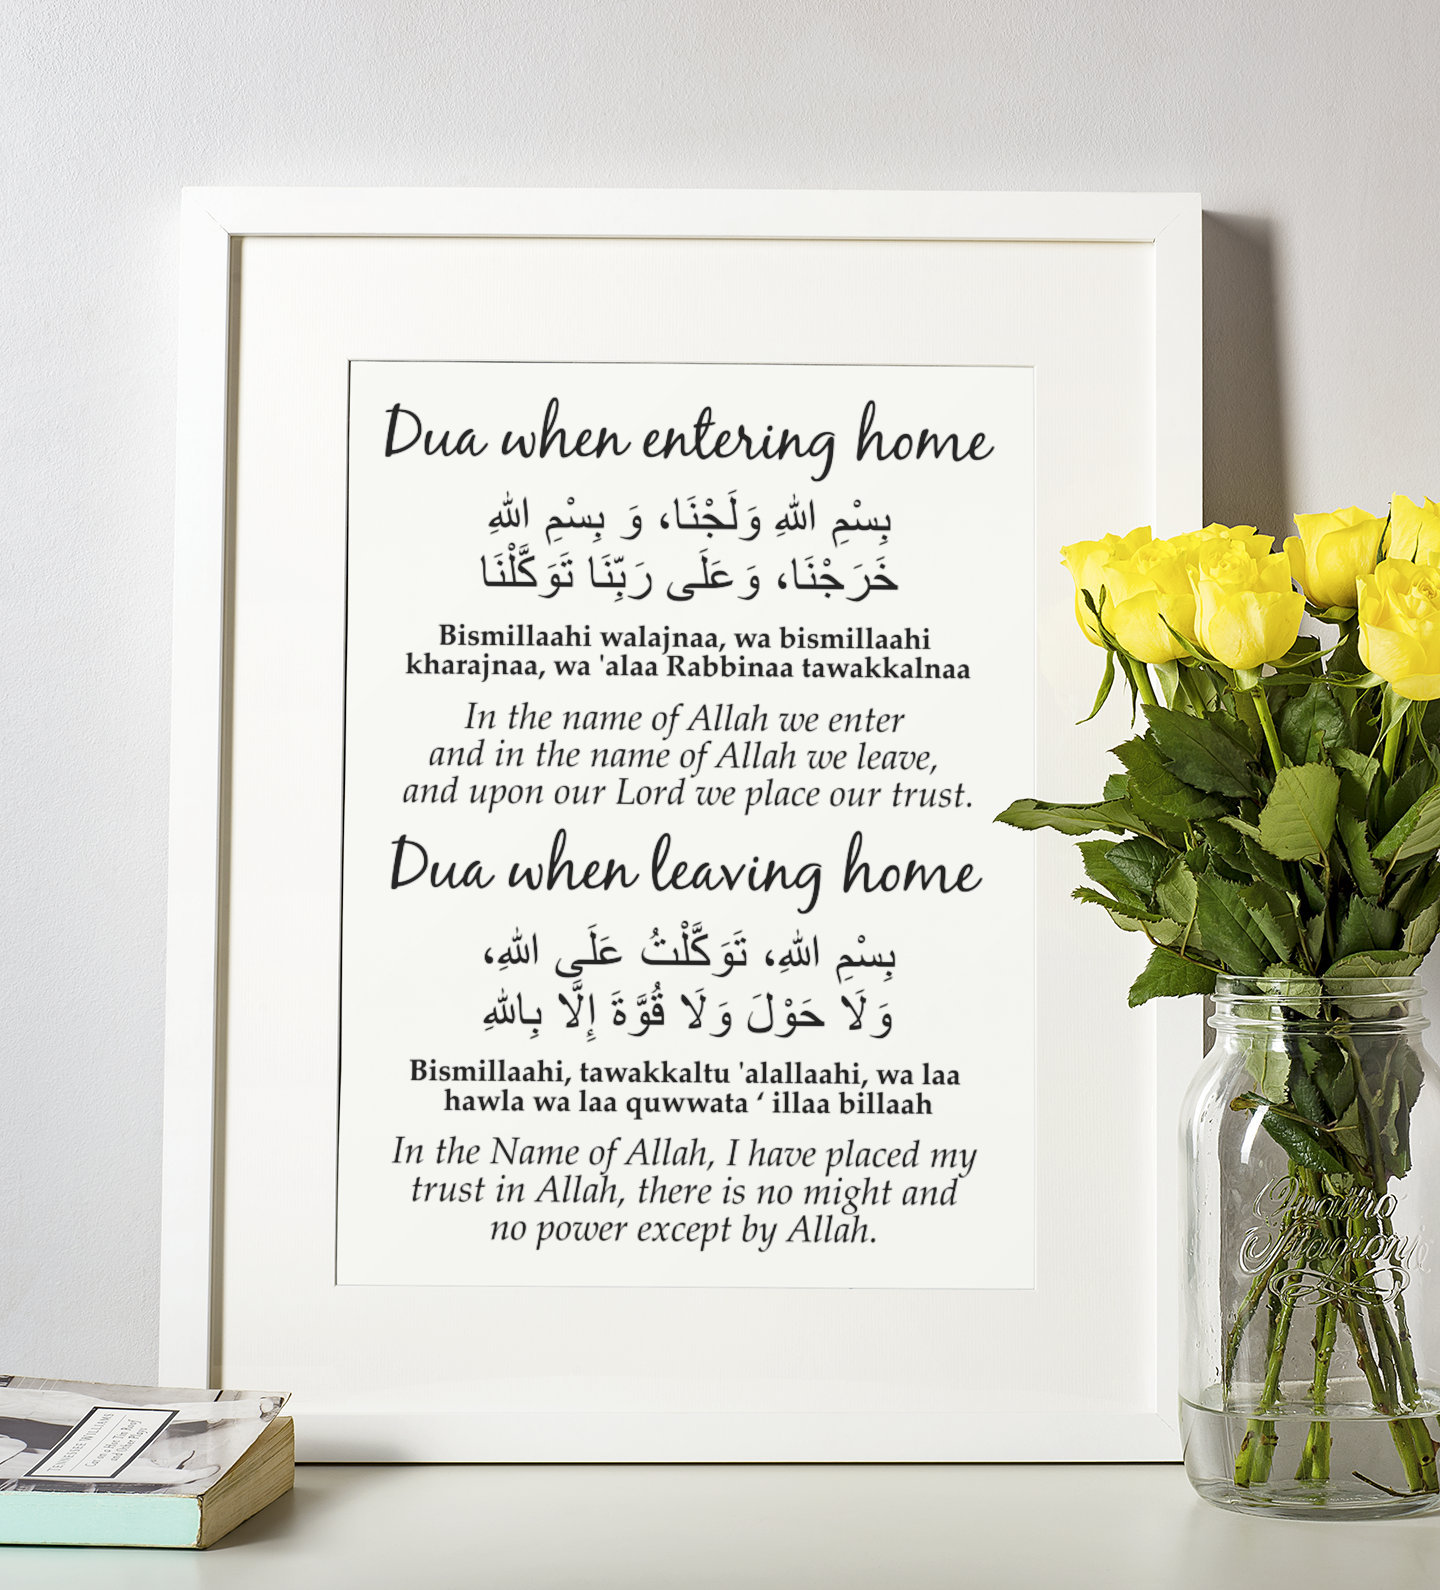 Dua when entering home
بِسْمِ اللهِ وَلَجْنَا، وَ بِسْمِ اللهِ
خَرَجْنَا، وَعَلَى رَبِّنَا تَوَكَّلْنَا
Bismillaahi walajnaa, wa bismillaahi
kharajnaa, wa 'alaa Rabbinaa tawakkalnaa
In the name of Allah we enter
and in the name of Allah we leave,
and upon our Lord we place our trust.
Dua when leaving home
بِسْمِ اللهِ، تَوَكَّلْتُ عَلَى اللهِ،
وَلَا حَوْلَ وَلَا قُوَّةَ إِلَّا بِاللهِ
Bismillaahi, tawakkaltu 'alallaahi, wa laa
hawla wa laa quwwata ‘ illaa billaah
In the Name of Allah, I have placed my
trust in Allah, there is no might and
no power except by Allah.
TENNESSEE WILLIAMS
Cat on a Hot Tin Roof
and Other Plays
Quattro
Stagioni